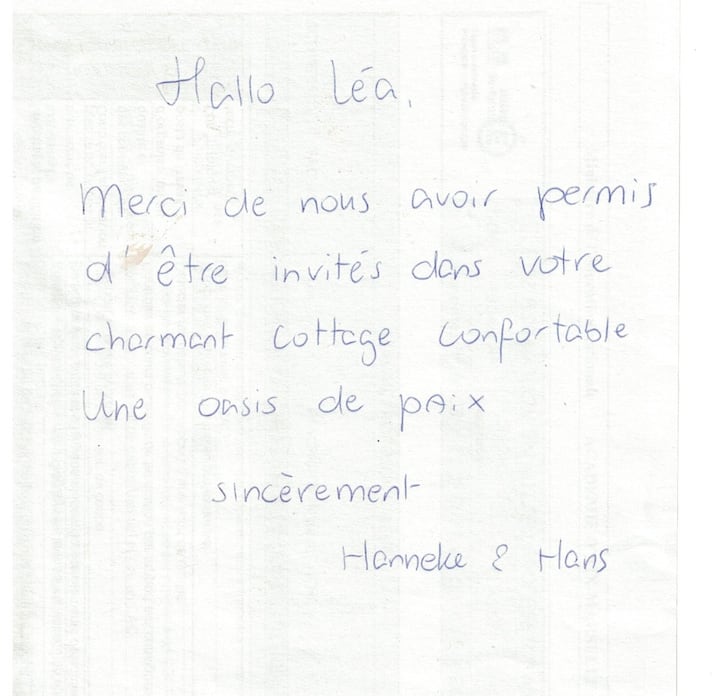 Hallo Léa,
Merci de nous avoir permis
d'être invités dans votre
charmant cottage confortable
Une oasis de paix
sincèrement
Hanneke & Hans